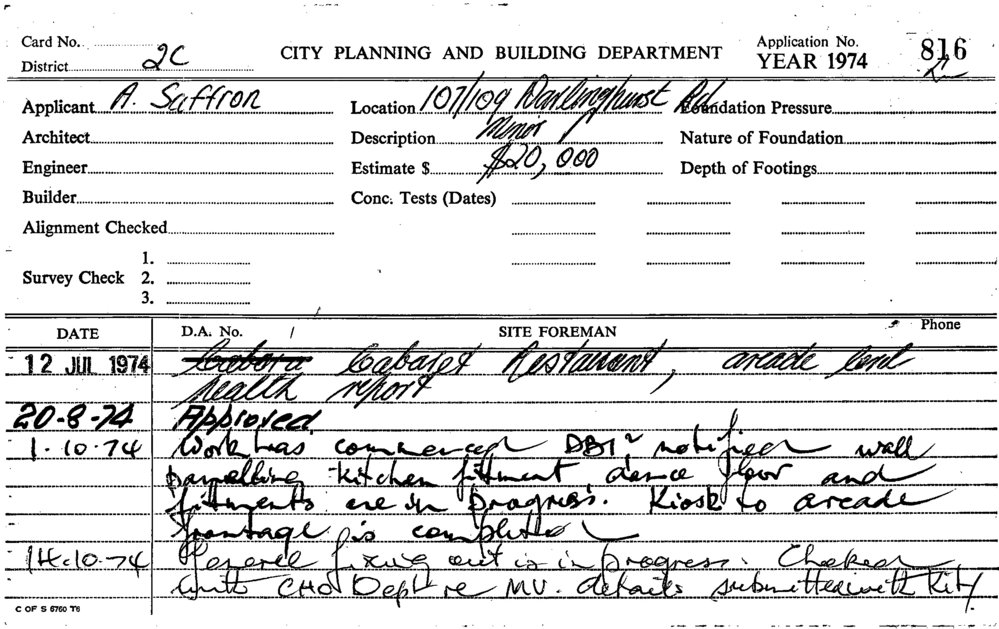 Card No.
District 2C
CITY PLANNING AND BUILDING DEPARTMENT
Application No. 816
YEAR 1974
Applicant A. Saffron
Location 107/109 Darlinghurst Rd
Foundation Pressure
Architect
Description Minor
Nature of Foundation
Engineer
Estimate $ $20,000
Depth of Footings
Builder
Conc. Tests (Dates)
Alignment Checked
Survey Check
1.
2.
3.
DATE D.A. No. / SITE FOREMAN Phone
12 JUL 1974 Cabaret Restaurant, arcade
health report
20-8-74 Approved
1-10-74 Work has commenced notified wall
panelling kitchen fittment dance floor and
fittments are in progress. Kiosk to arcade
frontage is completed
14-10-74 General fixing out is in progress. Checked
with CHO Dept re MV. details submitted with Kit
C OF S 6760 T6